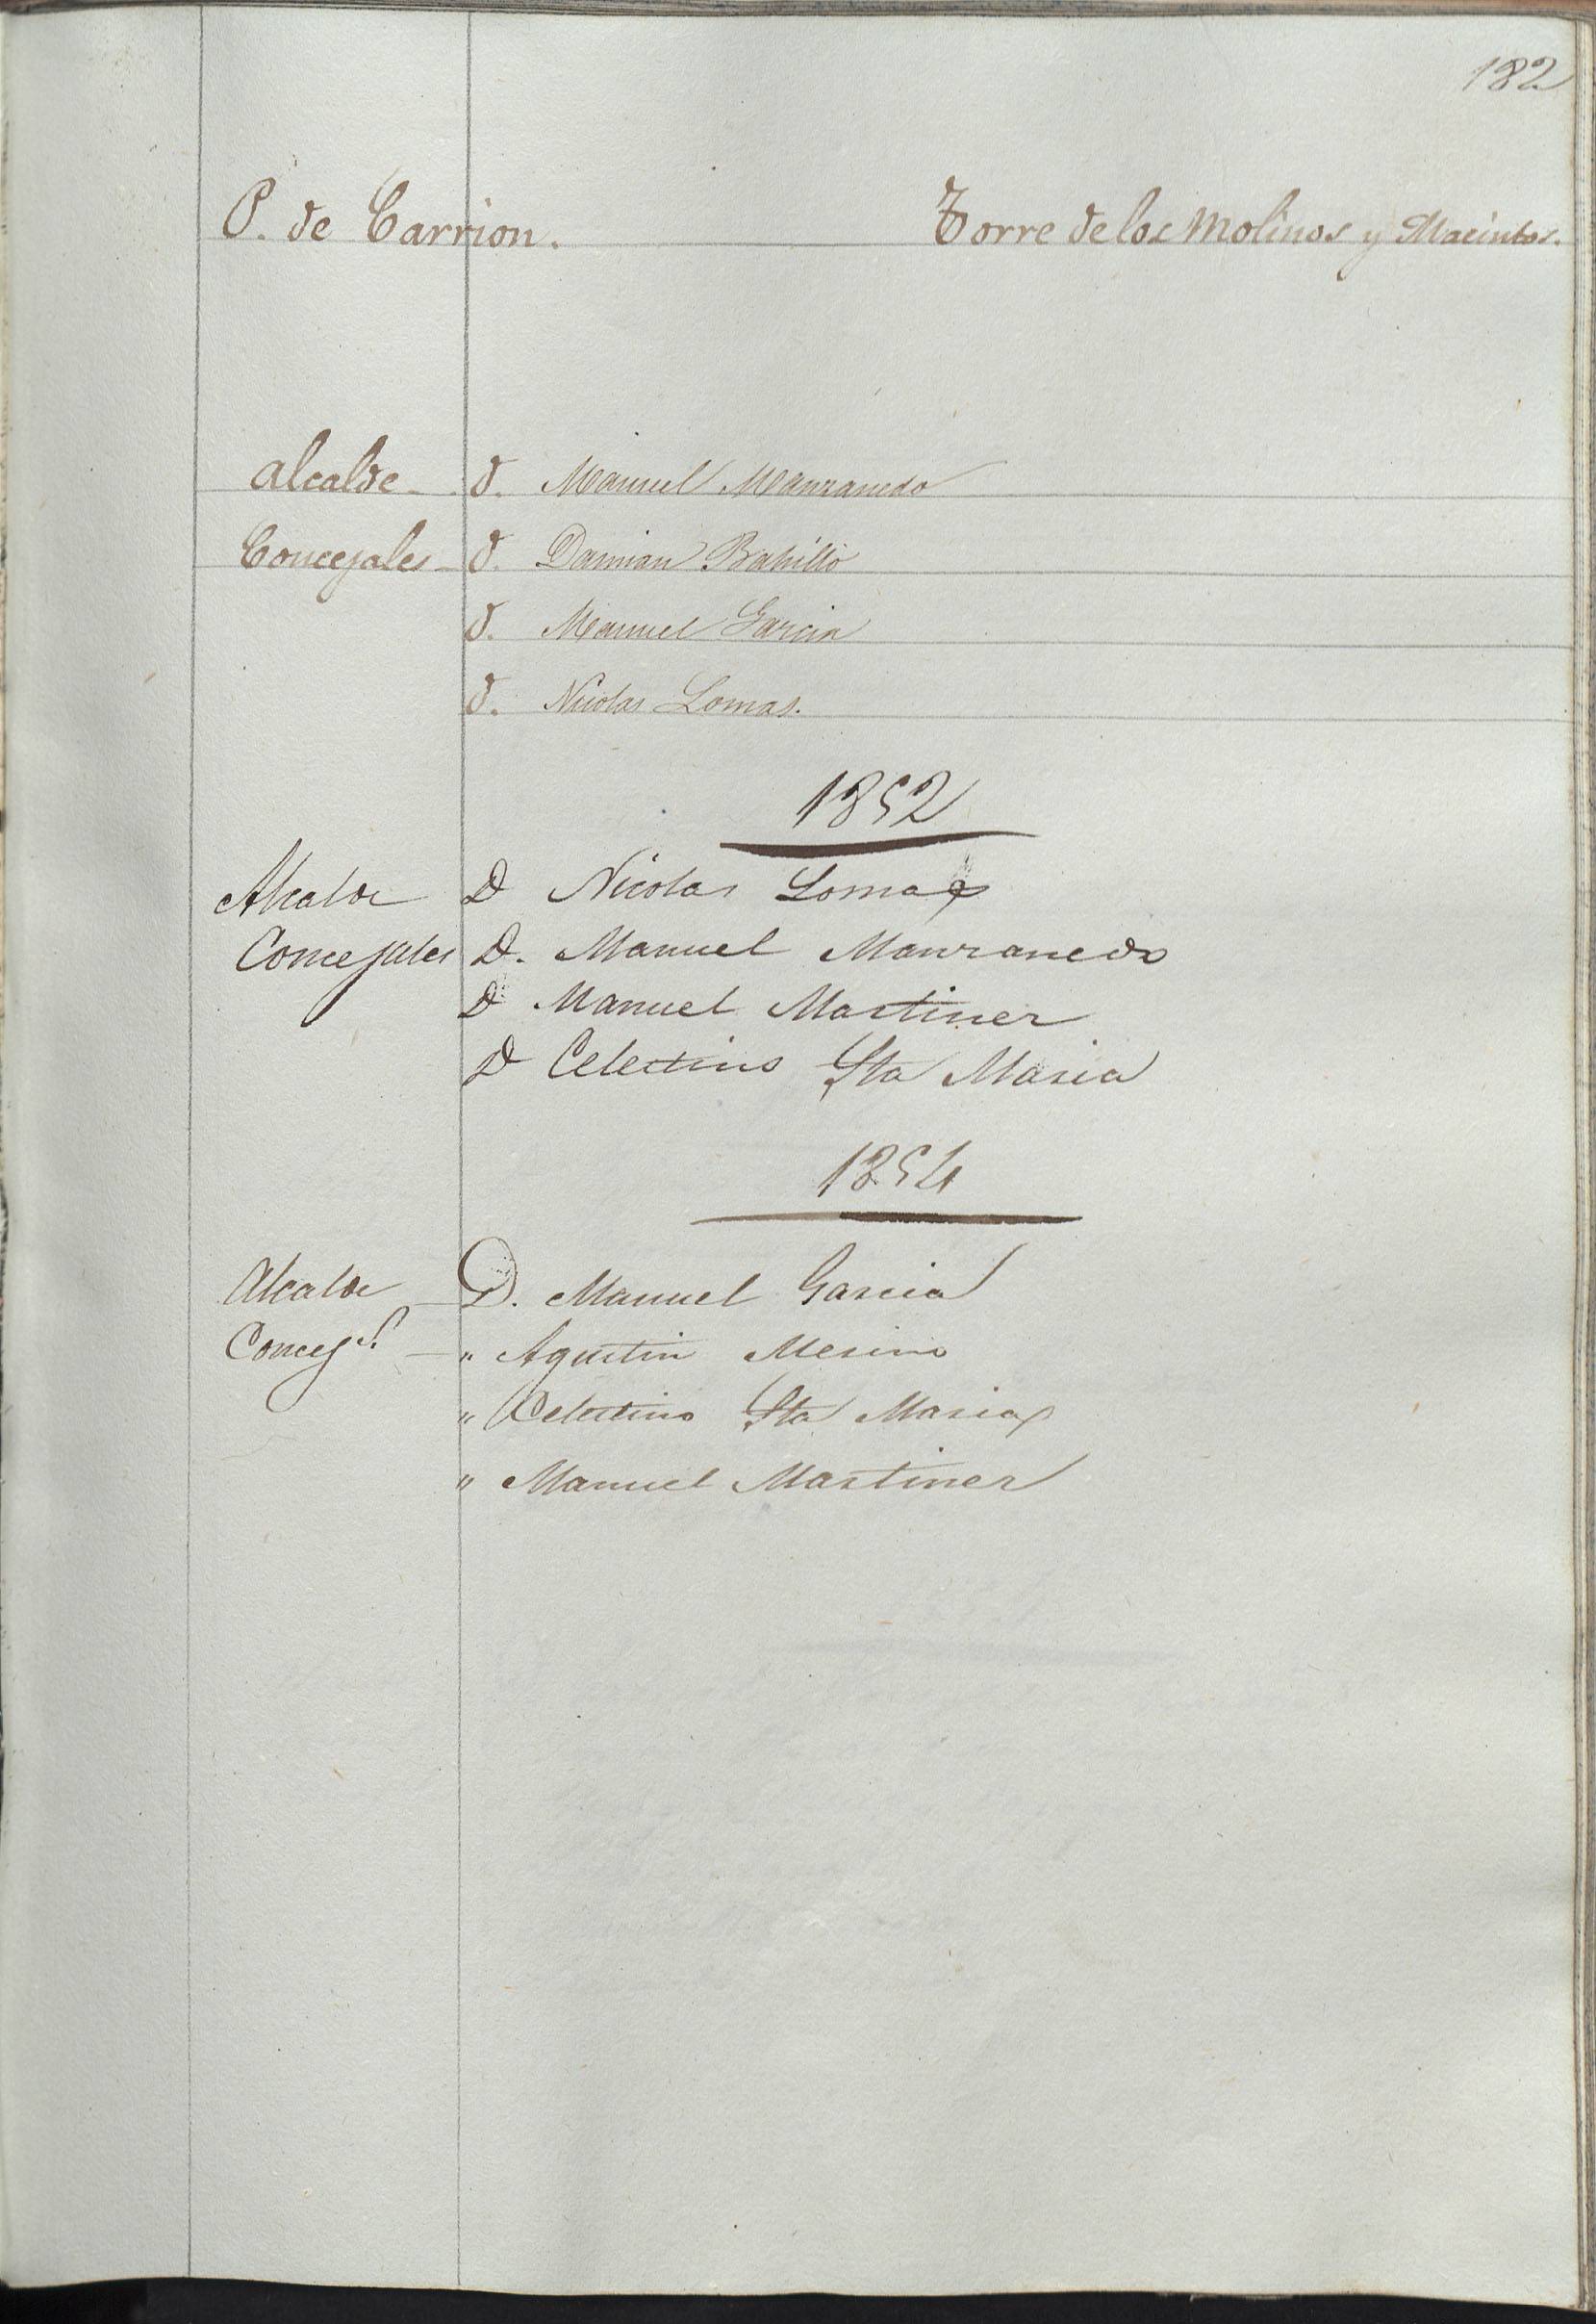 182
P. de Carrion. Torre de los Molinos y Macintos.
Alcalde D. Manuel Manzanedo
Concejales D. Damian Bahillo
D. Manuel Garcia
D. Nicolas Lomas.
1852
Alcalde D Nicolas Lomas
Concejales D. Manuel Manzanedo
D Manuel Martinez
D Celestino Sta Maria
1854
Alcalde D. Manuel Garcia
Concejs. " Agustin Merino
" Celestino Sta Maria
" Manuel Martinez